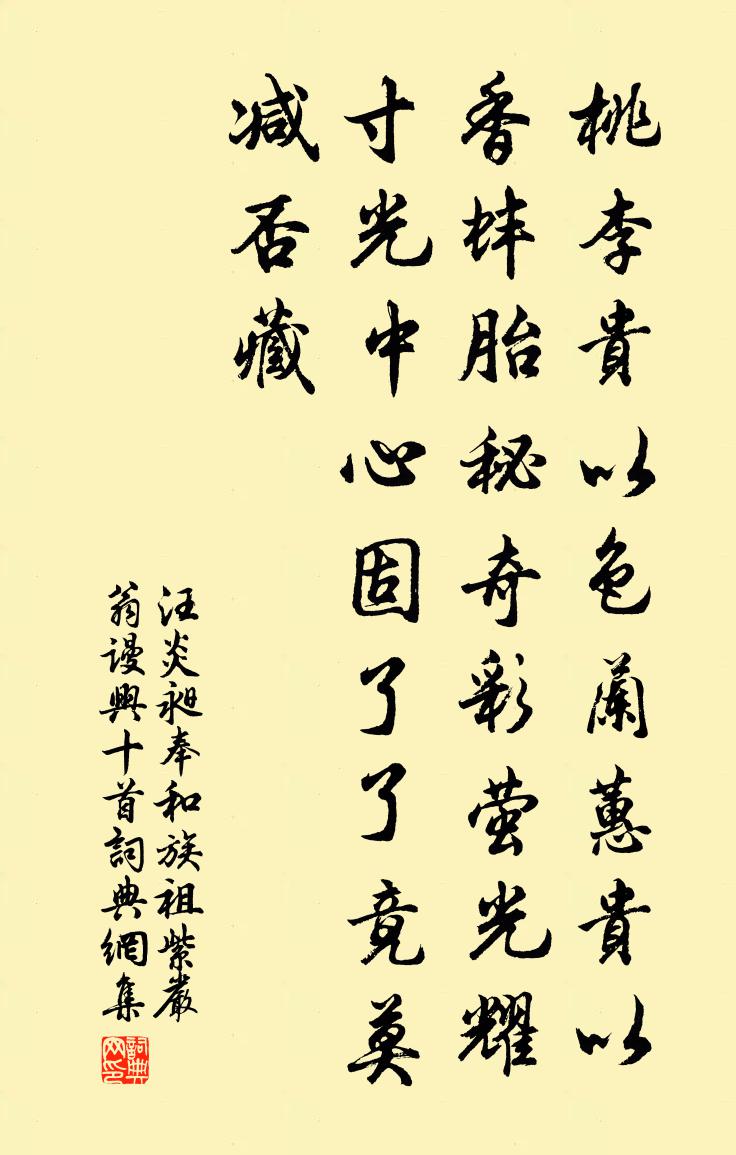 桃李貴以色蘭蕙貴以
香蚌胎秘奇彩螢光耀
寸光中心固了了竟莫
减否藏
汪炎昶奉和族祖紫巖
翁谩興十首詞典網集
詞典网印